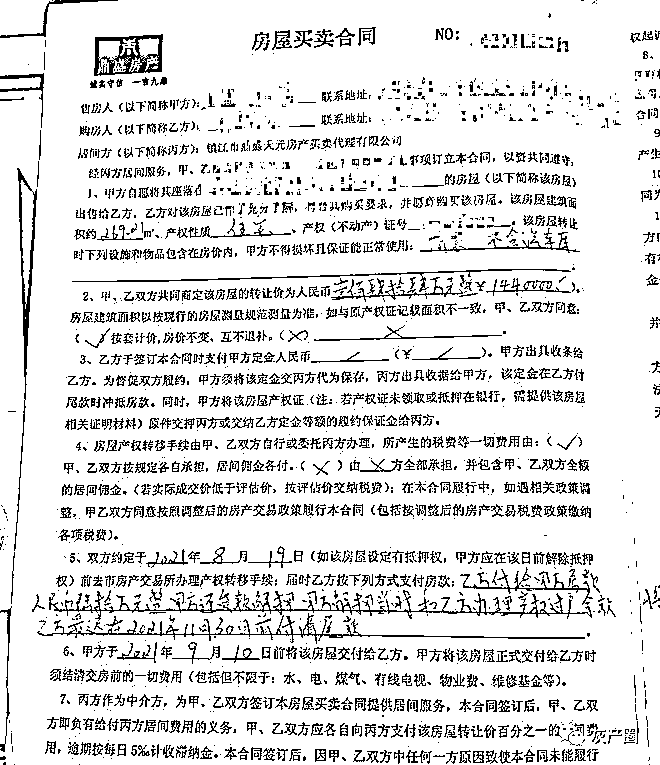 鼎盛房产
诚实守信 一言九鼎
房屋买卖合同 NO:
售房人（以下简称甲方）： 联系地址：
购房人（以下简称乙方）： 联系地址：
居间方（以下简称丙方）：镇江市鼎盛天元房产买卖代理有限公司
经丙方居间服务，甲、乙 事项订立本合同，以资共同遵守：
1、甲方自愿将其座落在 的房屋（以下简称该房屋）
出售给乙方，乙方对该房屋已作了充分了解，符合其购买要求，并愿意购买该房屋。该房屋建筑面
积约269.01㎡、产权性质 住宅 、产权（不动产）证号： 。该房屋转让
时下列设施和物品包含在房价内，甲方不得损坏且保证能正常使用：
2、甲、乙双方共同商定该房屋的转让价为人民币壹佰肆拾肆万元整（¥1440000）。
房屋建筑面积以按现行的房屋测量规范测量为准，如与原产权证记载面积不一致，甲、乙双方同意：
（✓）按套计价，房价不变、互不退补。（×） ×
3、乙方于签订本合同时支付甲方定金人民币 / （¥ / ）。甲方出具收条给
乙方。为督促双方履约，甲方须将该定金交丙方代为保存，丙方出具收据给甲方，该定金在乙方付
尾款时冲抵房款。同时，甲方将该房屋产权证（注：若产权证未领取或抵押在银行，需提供该房屋
相关证明材料）原件交押丙方或交纳乙方定金等额的履约保证金给丙方。
4、房屋产权转移手续由甲、乙双方自行或委托丙方办理，所产生的税费等一切费用由：（✓）
甲、乙双方按规定各自承担，居间佣金各付。（×）由 × 方全部承担，并包含甲、乙双方全额
的居间佣金。（若实际成交价低于评估价，按评估价交纳税费）；在本合同履行中，如遇相关政策调
整，甲乙双方同意按照调整后的房产交易政策履行本合同（包括按调整后的房产交易税费政策缴纳
各项税费）。
5、双方约定于2021年8月19日（如该房屋设定有抵押权，甲方应在该日前解除抵押
权）前去市房产交易所办理产权转移手续；届时乙方按下列方式支付房款：乙方付给甲方房款
人民币 拾万元整 甲方还贷款解押 甲方解押当时和乙方办理产权过户 余款
乙方最迟在2021年11月30日前付清尾款
6、甲方于2021年9月10日前将该房屋交付给乙方。甲方将该房屋正式交付给乙方时
须结清交房前的一切费用（包括但不限于：水、电、煤气、有线电视、物业费、维修基金等）。
7、丙方作为中介方，为甲、乙双方签订本房屋买卖合同提供居间服务，本合同签订后，甲、乙双
方即负有给付丙方居间费用的义务，甲、乙双方应各自向丙方支付该房屋转让价百分之一的 间费
用，逾期按每日5‰计收滞纳金。本合同签订后，因甲、乙双方中任何一方原因致使本合同未能履行
房产圈